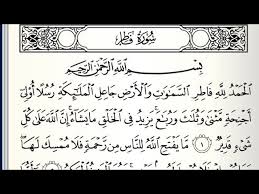 سورة فاطر
بسم الله الرحمن الرحيم
الحمد لله فاطر السموات والأرض جاعل الملئكة رسلا أولي
أجنحة مثنى وثلث وربع يزيد في الخلق ما يشاء إن الله على كل
شيء قدير ١ ما يفتح الله للناس من رحمة فلا ممسك لها